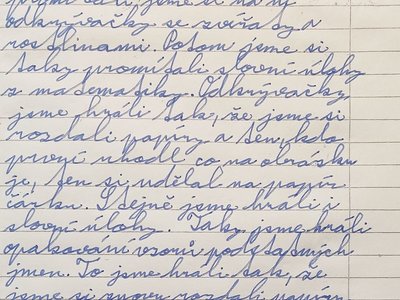 jsme si na ní
odkrývačky se zvířaty a
rostlinami. Potom jsme si
taky promítali slovní úlohy
z matematiky. Odkrývačky
jsme hráli tak, že jsme si
rozdali papíry a ten, kdo
první uhodl co na obrázku
je, ten si udělal na papír
čárku. Stejně jsme hráli i
slovní úlohy. Taky jsme hráli
opakování vzorů podstatných
jmen. To jsme hráli tak, že
jsme si znovu rozdali papíry